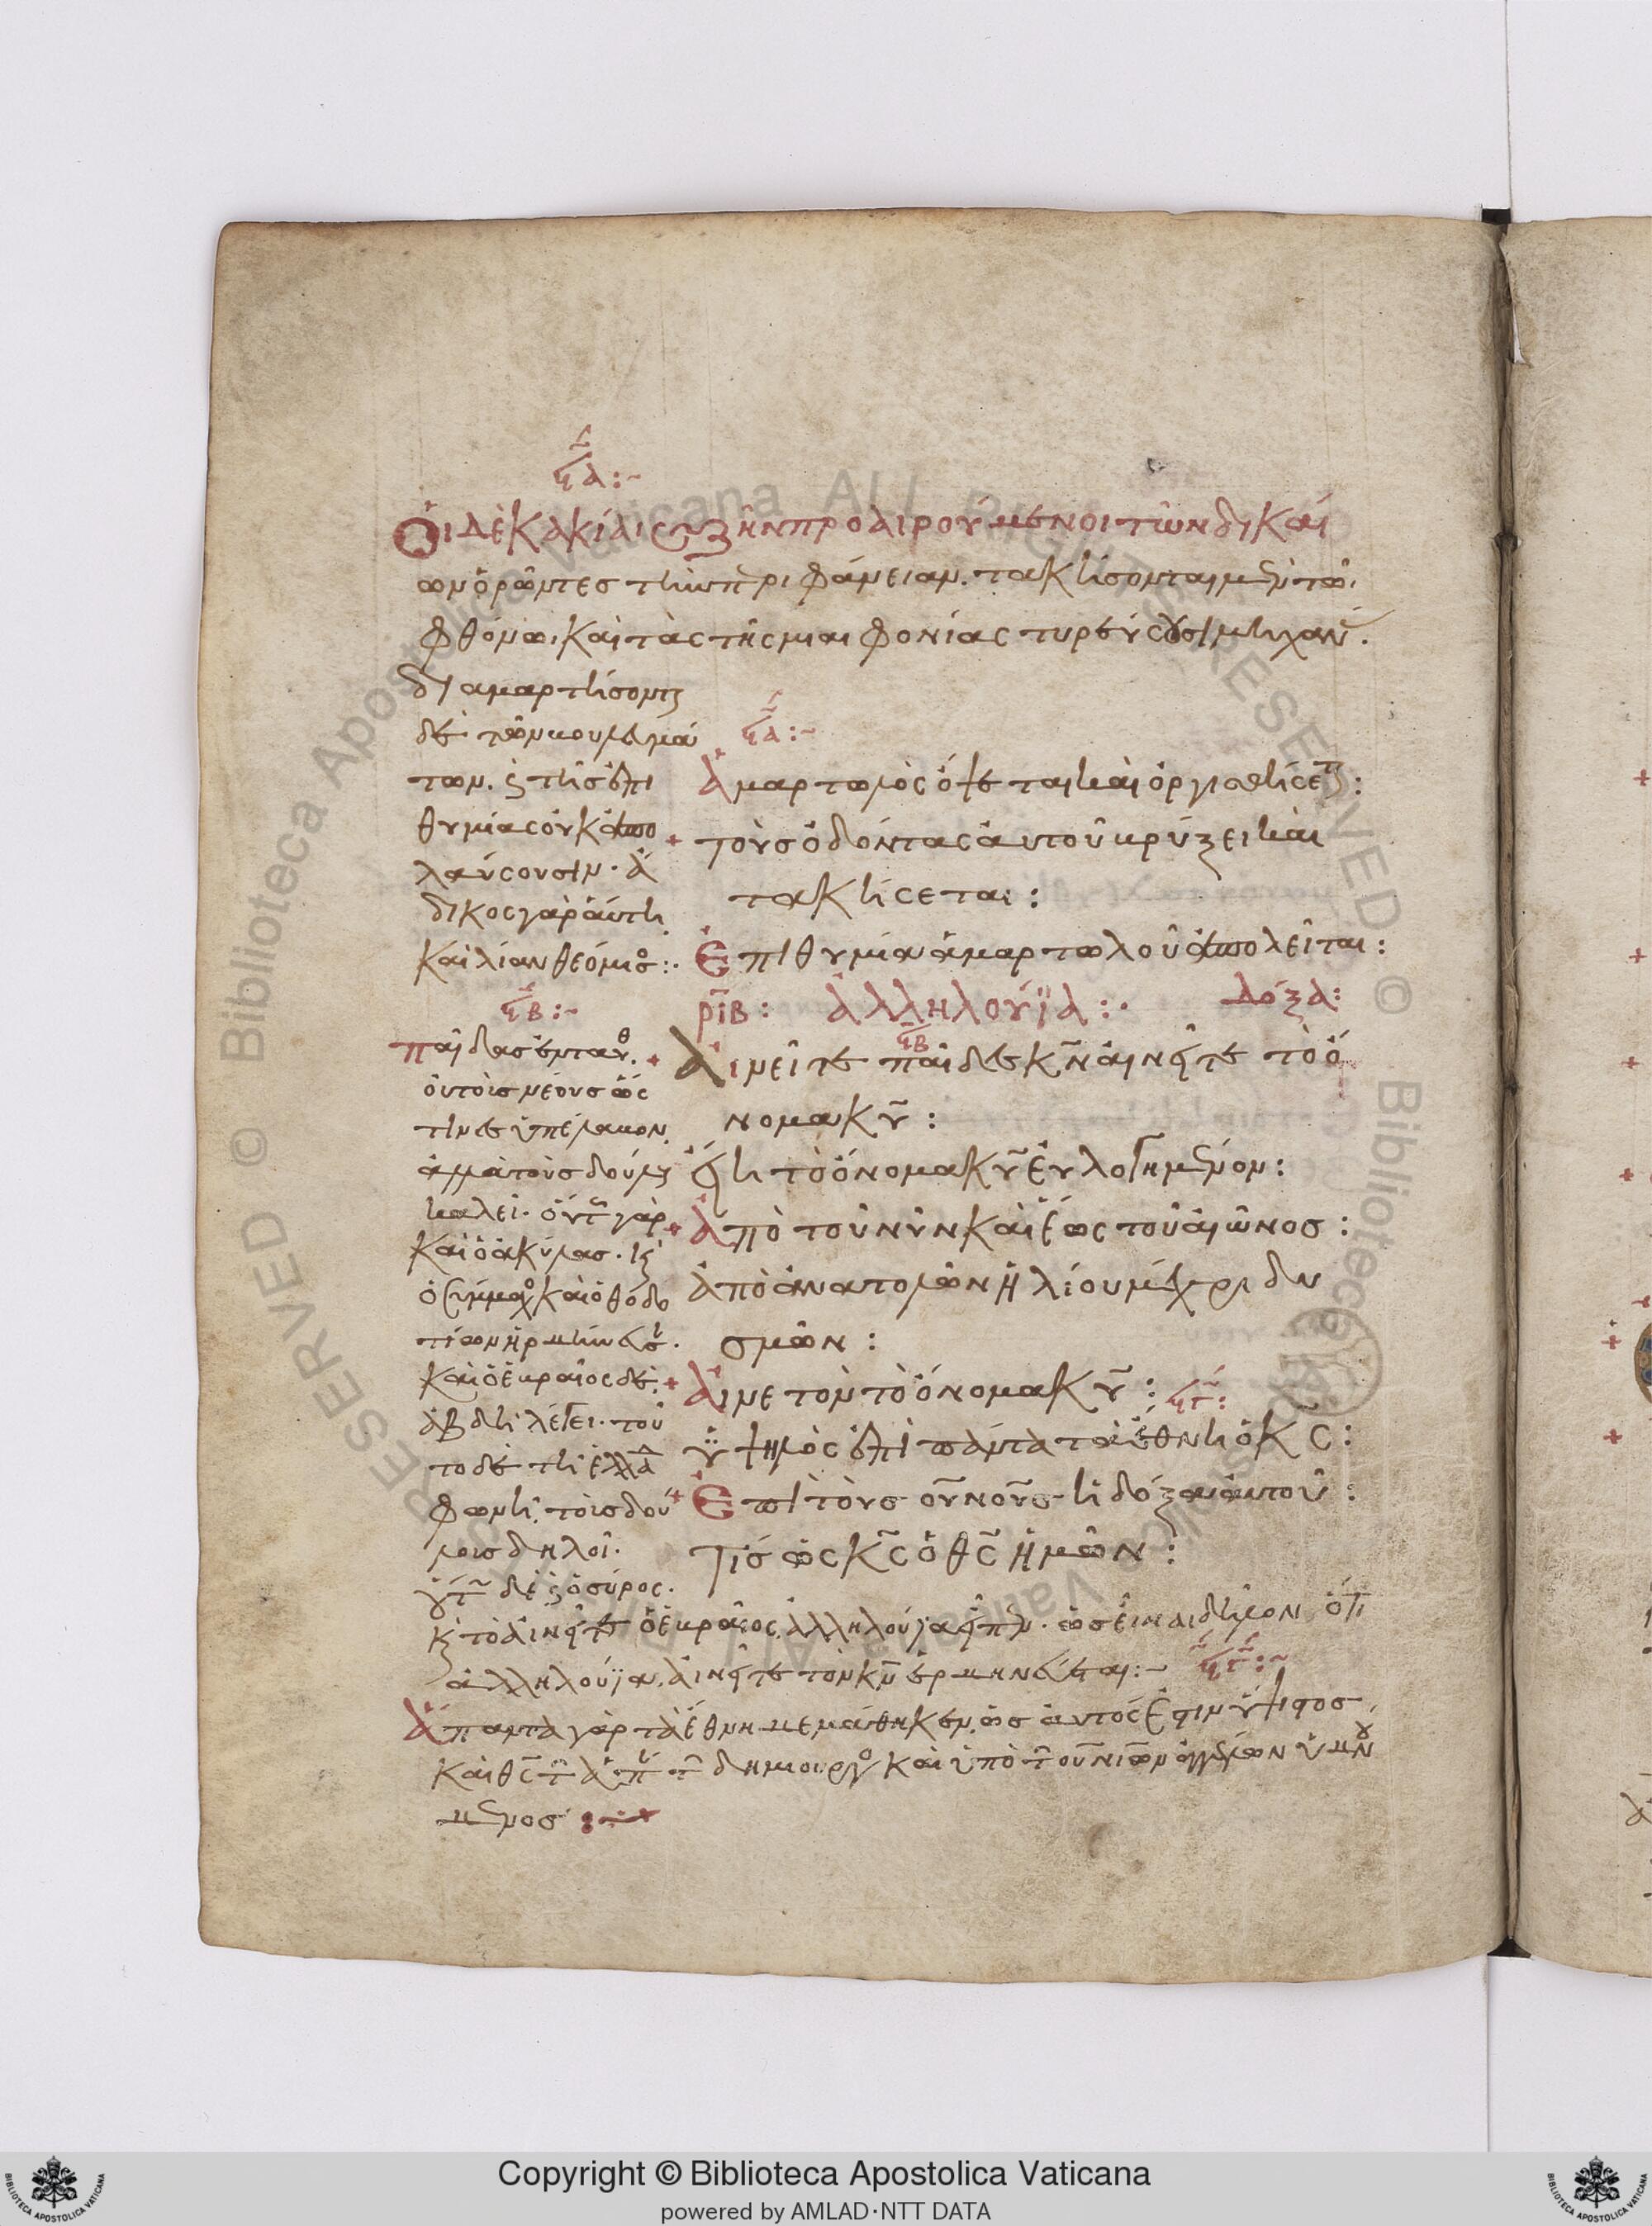 Οἱ δὲ κακίαι συζῆν προαιρούμενοι τῶν δικαί
ων ὁρῶντες τὴν περιφάνειαν. τακήσονται μὲν τῶι
φθόνωι καὶ τὰς τῆς μιαιφονίας τυρεύσουσι μηχανάς.
διαμαρτήσονται
δὲ τῶν βουλευμά
των. καὶ τῆς ἐπι
θυμίας οὐκ ἀπο
λαύσουσιν. ἄ
δικος γὰρ αὐτὴ
καὶ λίαν
Ἁμαρτωλὸς ὄψεται καὶ ὀργισθήσεται:
τοὺς ὀδόντας αὐτοῦ βρύξει καὶ
τακήσεται:
Ἐπιθυμία ἁμαρτωλοῦ ἀπολεῖται:
ριβ: Ἀλληλούϊα: Δόξα:
παῖδας ἐνταῦθ
οὐ τοὺς νέους ὥς
τινες ὑπέλαβον.
ἀλλὰ τοὺς δούλους
καλεῖ. οὕτω γὰρ
καὶ ὁ ἀκύλας. καὶ
ὁ σύμμαχος καὶ ὁ θεοδο
τίων ἡρμήνευσ
καὶ ὁ ἑβραῖος δὲ
ἀβδὴ λέγει. τοῦ
το δὲ τῆι ἑλλάδι
φωνῆι τοὺς δού
λους δηλοῖ.
οὕτω δὲ καὶ ὁ σύρος.
Αἰνεῖτε παῖδες κν αἰνεῖτε τὸ ὄ
νομα κυ:
Εἴη τὸ ὄνομα κυ εὐλογημένον:
Ἀπὸ τοῦ νῦν καὶ ἕως τοῦ αἰῶνος:
Ἀπὸ ἀνατολῶν ἡλίου μέχρι δυ
σμῶν:
Αἰνετὸν τὸ ὄνομα κυ:
Ὑψηλὸς ἐπὶ πάντα τὰ ἔθνη ὁ κς:
Ἐπὶ τοὺς ουνους ἡ δόξα αὐτοῦ:
Τίς ὡς κς ὁ θς ἡμῶν:
καὶ τὸ αἰνεῖτε ὁ ἑβραῖος ἀλληλούϊα εἶπεν. ὡς εἶναι δῆλον ὅτι
ἀλληλούϊα. αἰνεῖτε τὸν κν ἑρμηνεύεται:~
Ἅπαντα γὰρ τὰ ἔθνη μεμάθηκεν. ὡς αὐτός ἐστιν ὕψιστος
καὶ θς τ ἁπ τ δημιουργὸς καὶ ὑπὸ τ ουνίων ἀγγέλων ὑμνού
μενος